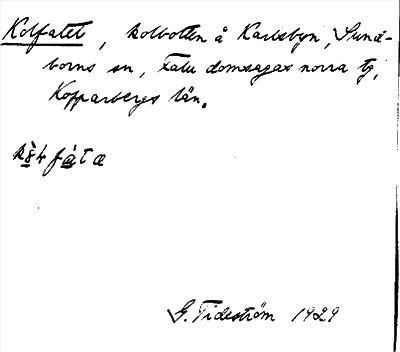 Kolfatet, kolbotten å Karlsbyn, Sund-
borns sn, Falu domsagas norra tg,
Kopparbergs län.
G. Tideström 1929